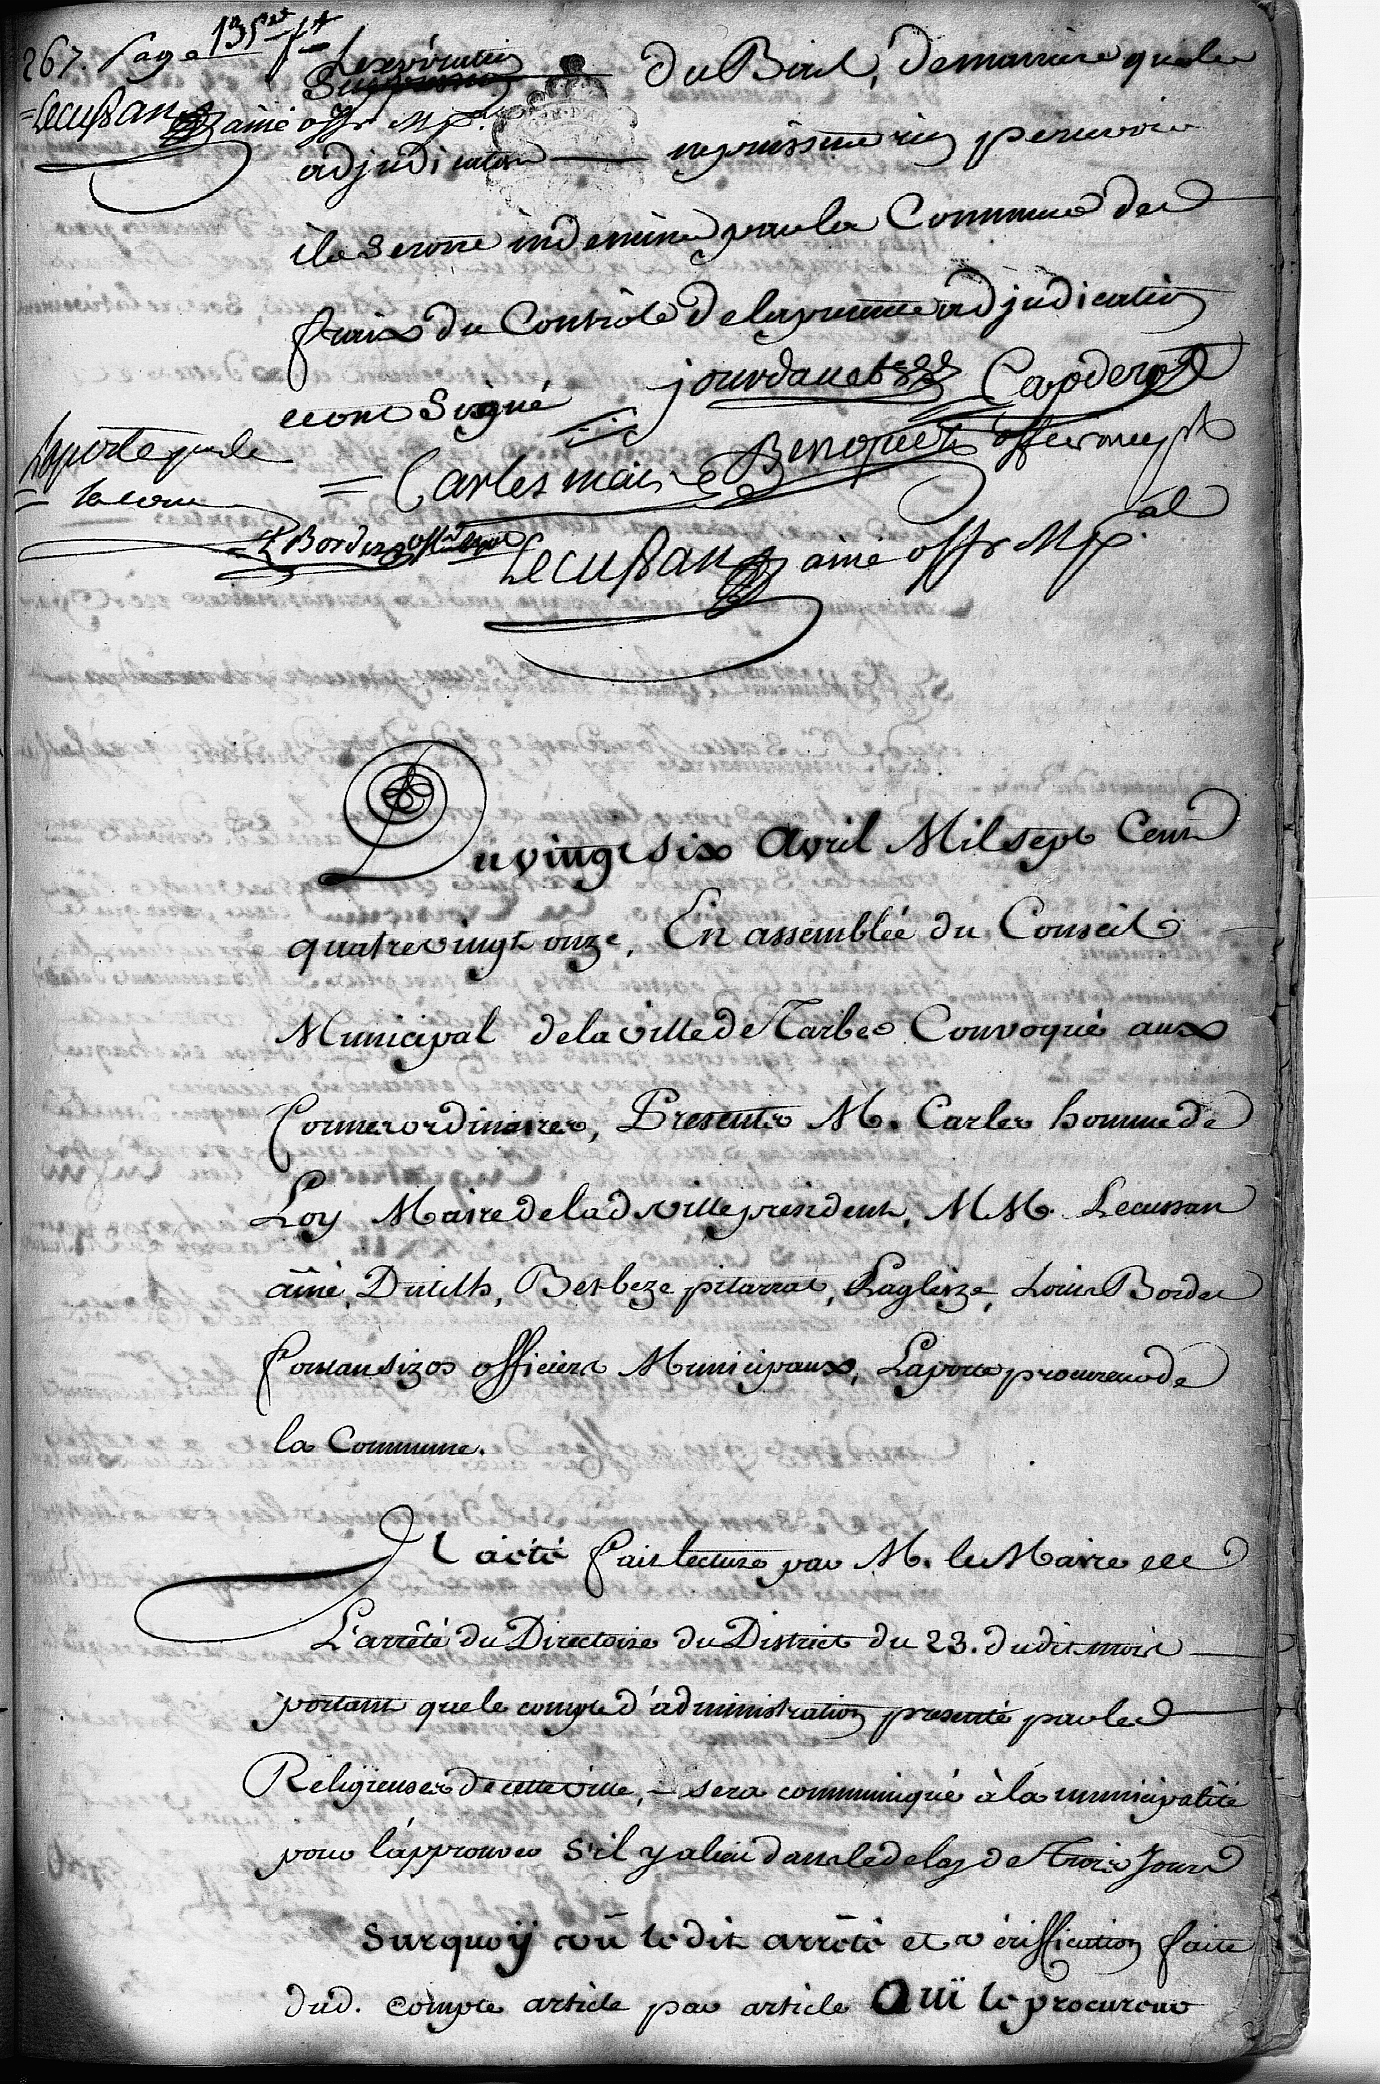 267. page 135
Lecussan aîné offr mpl
L'exécution
du Bail, de maniere que les
adjudicataires ne puissent rien percevoir
ils seront indemnisé par la Commune des
fraix du Controle de la presente adjudication
et ont Signé
jourdanet Capderoy
Laporte pr de
la com
Carles maire Benquet offer munpl
L. Bordes off munipal
Lecussan aîné offr Mpal
Du vingt six Avril Mil sept Cent
quatre vingt onze, En assemblée du Conseil
Municipal de la ville de Tarbes Convoqué aux
formes ordinaires, Presents M. Carles homme de
Loy Maire de lad ville president, MM. Lecussan
âiné, Dutilh, Berbeze pitarrat, Lagleize, Louis Bordes
fontan sizos officiers Municipaux, Laporte procureur de
la Commune.
Il a été fait lecture par M. le Maire de
L'arrêté du Directoire du District du 23. dudit mois
portant que le compte d'administration presenté par les
Religieuses de cette ville, sera communiqué à la municipalité
pour l'approuver s'il y a lieu dans le delay de Trois Jours
Surquoy vû le dit arrêté et vériffication faite
dud. compte article par article Ouï le procureur